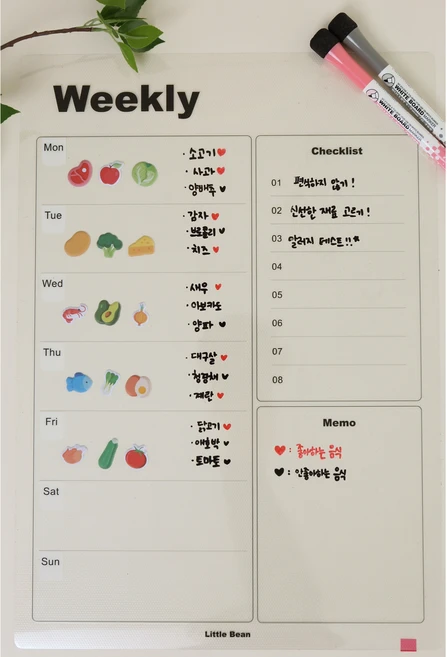 WHITE BOARD
WHITE BOARD
Weekly
Mon
· 소고기♥
· 사과♥
· 양배추♥
Tue
· 감자♥
· 브로콜리♥
· 치즈♥
Wed
· 새우♥
· 아보카도
· 양파♥
Thu
· 대구살♥
· 청경채♥
· 계란♥
Fri
· 닭고기♥
· 애호박♥
· 토마토♥
Sat
Sun
Checklist
01 편식하지 않기!
02 신선한 재료 고르기!
03 알러지 테스트!!
04
05
06
07
08
Memo
♥ : 좋아하는 음식
♥ : 안좋아하는 음식
Little Bean